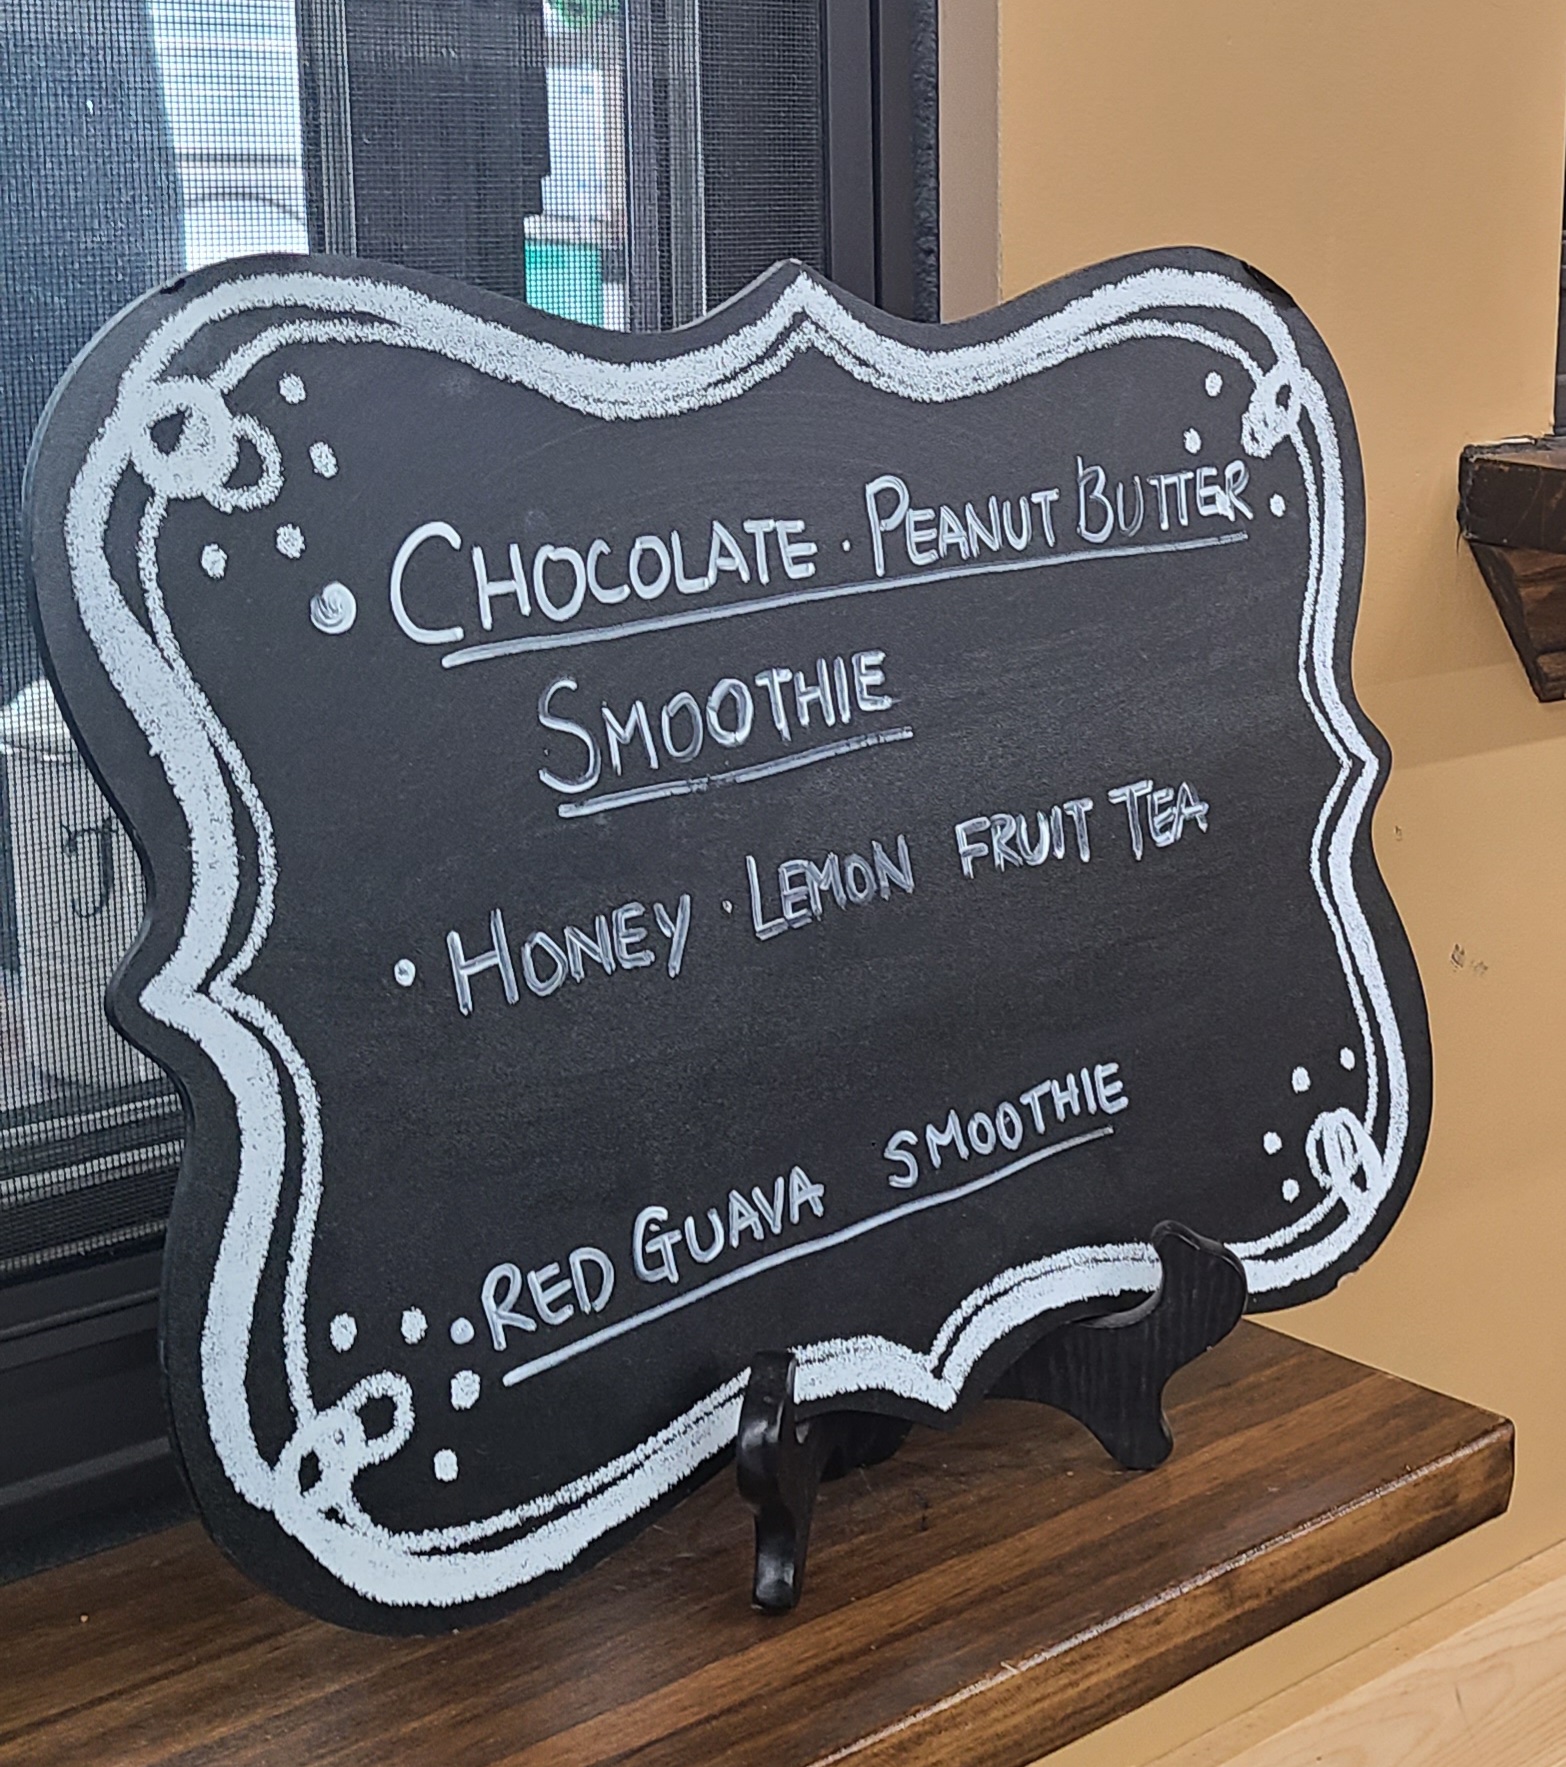 • CHOCOLATE · PEANUT BUTTER
SMOOTHIE
• HONEY · LEMON FRUIT TEA
• RED GUAVA SMOOTHIE